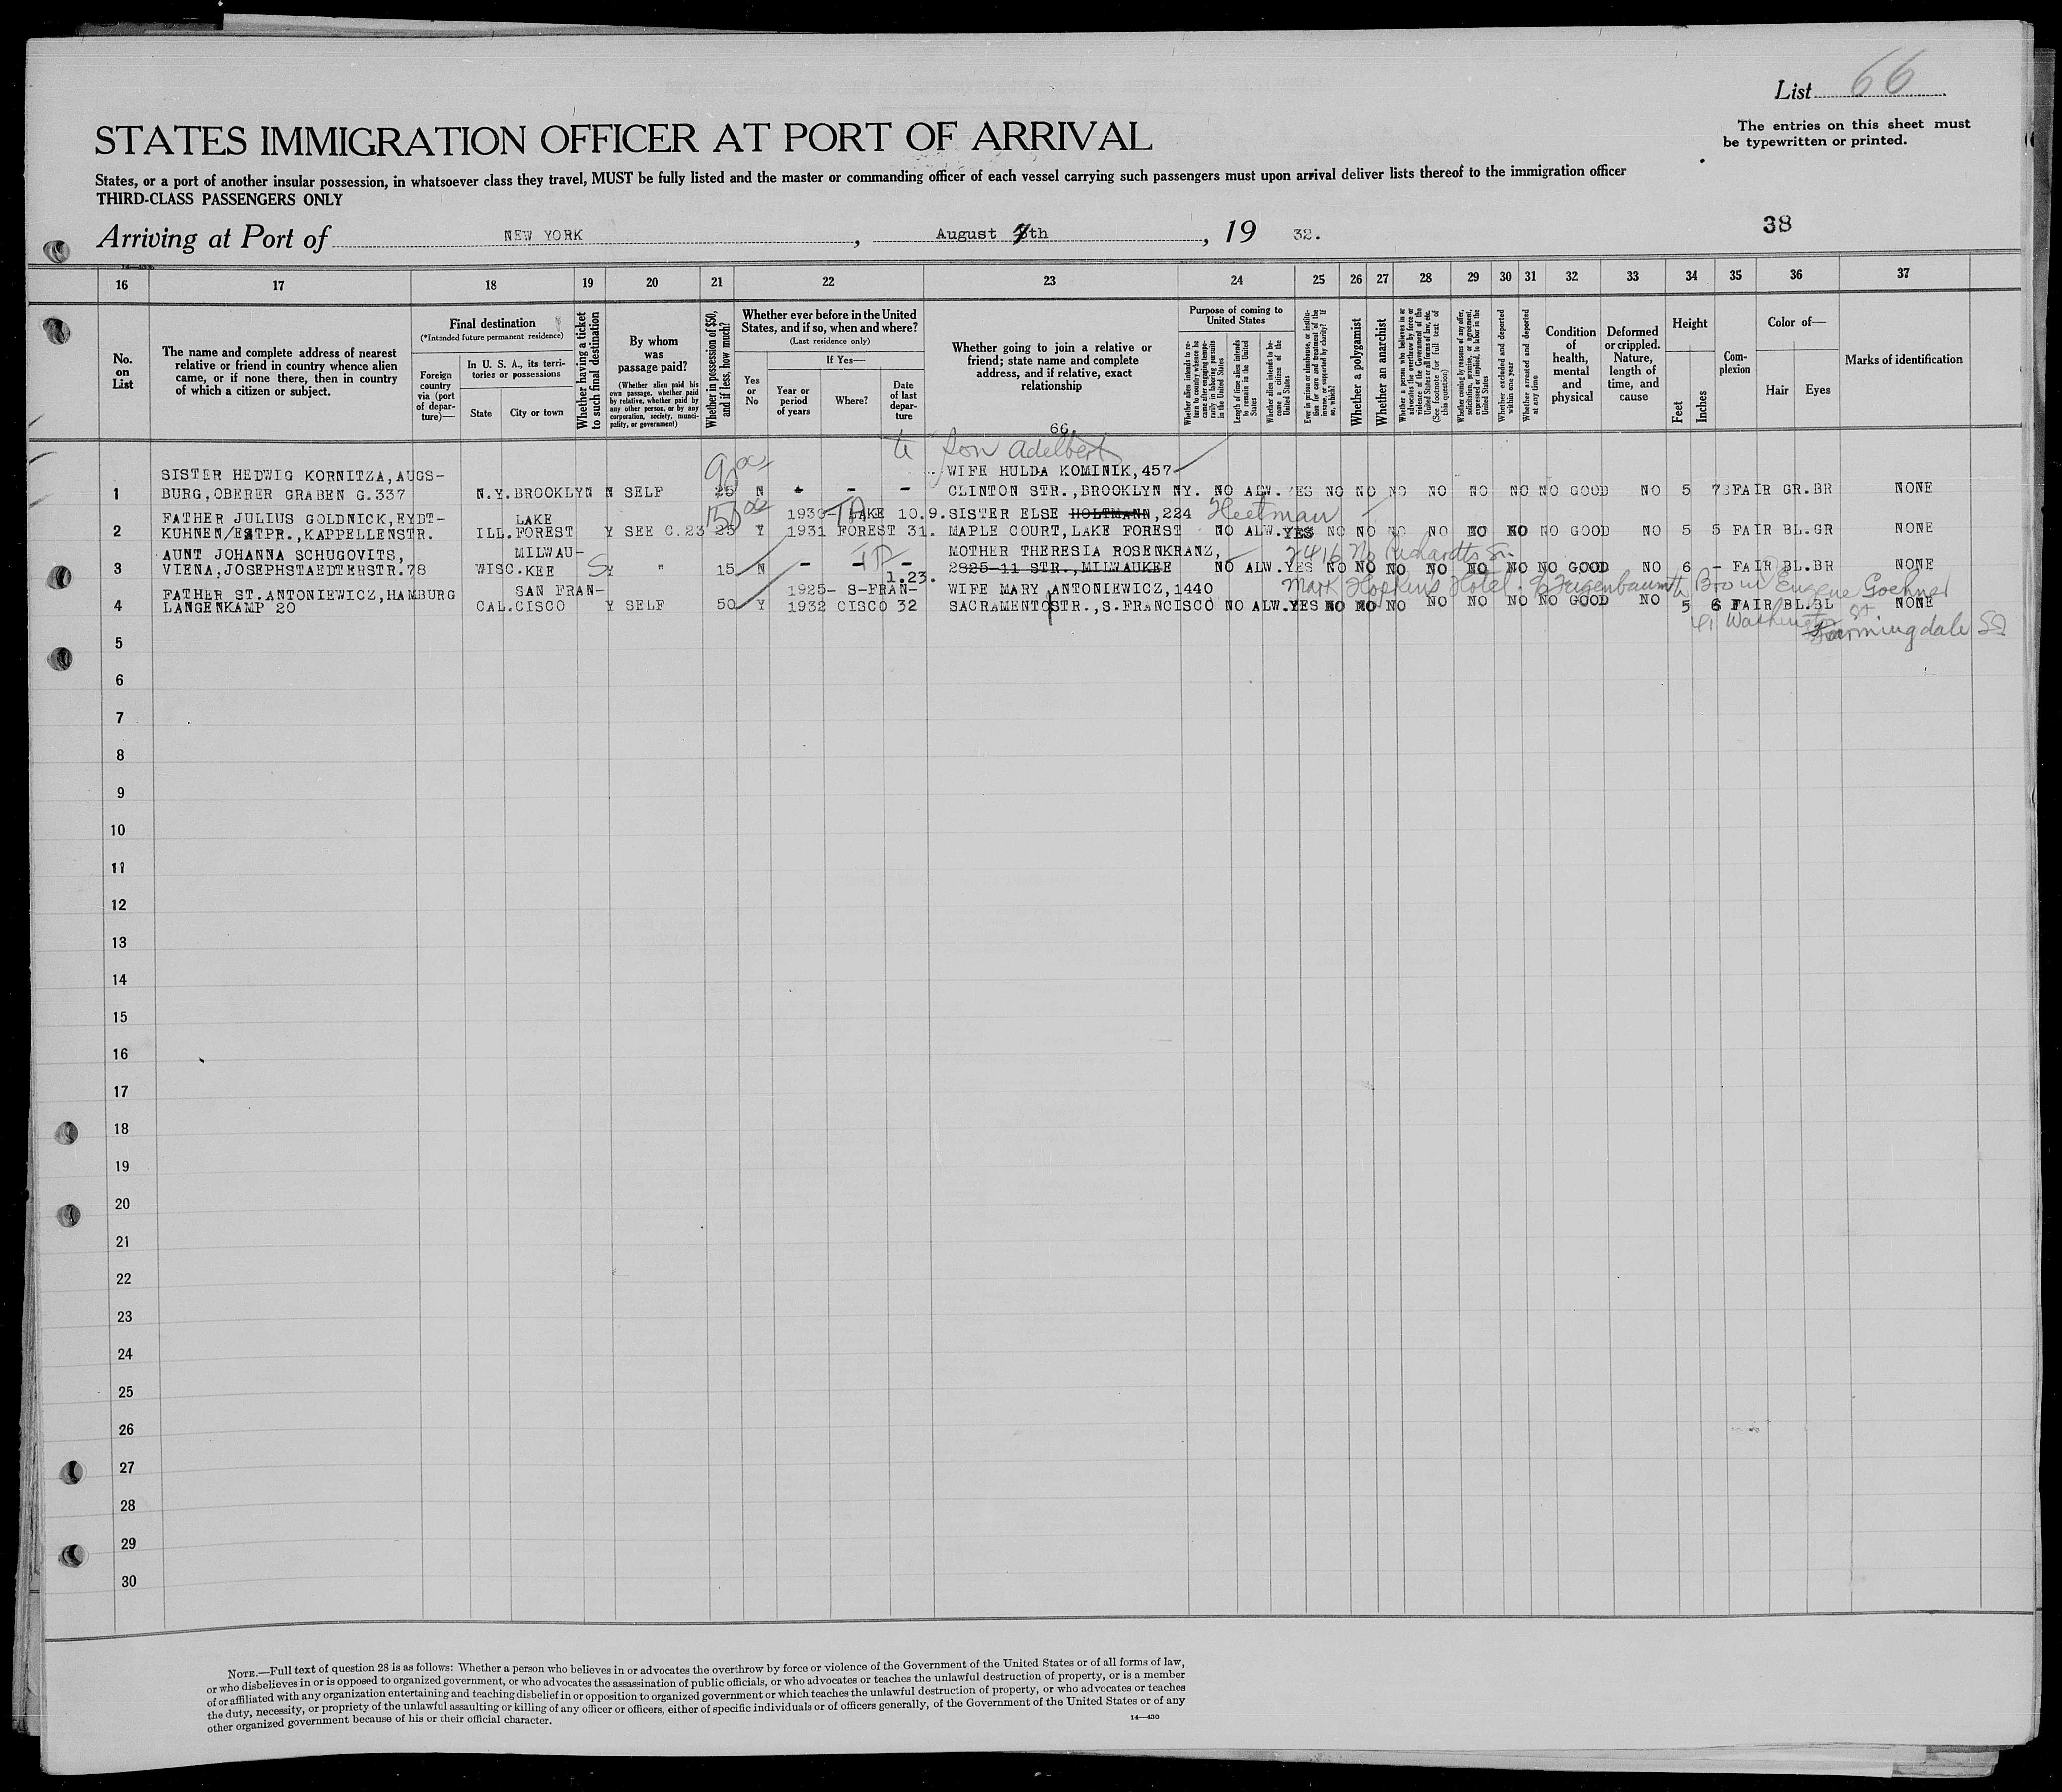 List 66
The entries on this sheet must
be typewritten or printed.
STATES IMMIGRATION OFFICER AT PORT OF ARRIVAL
States, or a port of another insular possession, in whatsoever class they travel, MUST be fully listed and the master or commanding officer of each vessel carrying such passengers must upon arrival deliver lists thereof to the immigration officer
THIRD-CLASS PASSENGERS ONLY
Arriving at Port of NEW YORK, August 7th, 19 32.
38
16 17 18 19 20 21 22 23 24 25 26 27 28 29 30 31 32 33 34 35 36 37
No.
on
List
The name and complete address of nearest
relative or friend in country whence alien
came, or if none there, then in country
of which a citizen or subject.
Final destination
(*Intended future permanent residence)
Foreign
country
via (port
of depar-
ture)—
In U. S. A., its terri-
tories or possessions
State City or town
Whether having a ticket
to such final destination
By whom
was
passage paid?
(Whether alien paid his
own passage, whether paid
by relative, whether paid by
any other person, or by any
corporation, society, munici-
pality, or government)
Whether in possession of $50,
and if less, how much?
Whether ever before in the United
States, and if so, when and where?
(Last residence only)
Yes
or
No
If Yes—
Year or
period
of years
Where?
Date
of last
depar-
ture
Whether going to join a relative or
friend; state name and complete
address, and if relative, exact
relationship
66.
Purpose of coming to
United States
Whether alien intends to re-
turn to country whence he
came after engaging tempo-
rarily in laboring pursuits
in the United States
Length of time alien intends
to remain in the United
States
Whether alien intends to be-
come a citizen of the
United States
Ever in prison or almshouse, or institu-
tion for care and treatment of the
insane, or supported by charity? If
so, which?
Whether a polygamist
Whether an anarchist
Whether a person who believes in or
advocates the overthrow by force or
violence of the Government of the
United States or all forms of law, etc.
(See footnote for full text of
this question)
Whether coming by reasons of any offer,
solicitation, promise, or agreement,
expressed or implied, to labor in the
United States
Whether excluded and deported
within one year
Whether arrested and deported
at any time
Condition
of
health,
mental
and
physical
Deformed
or crippled.
Nature,
length of
time, and
cause
Height
Feet Inches
Com-
plexion
Color of—
Hair Eyes
Marks of identification
to son Adelbert
SISTER HEDWIG KORNITZA, AUGS- 90 WIFE HULDA KOMINIK, 457
1 BURG, OBERER GRABEN G.337 N.Y. BROOKLYN N SELF 25 N - - - CLINTON STR., BROOKLYN NY. NO ALW. YES NO NO NO NO NO NO NO GOOD NO 5 7 FAIR GR. BR NONE
FATHER JULIUS GOLDNICK, EYDT- LAKE 150 1930- LAKE 10.9. SISTER ELSE HOLTMANN, 224 Heetman
2 KUHNEN/ESTPR., KAPPELLENSTR. ILL. FOREST Y SEE C.23 25 Y 1931 FOREST 31. MAPLE COURT, LAKE FOREST NO ALW. YES NO NO NO NO NO NO NO GOOD NO 5 5 FAIR BL. GR NONE
AUNT JOHANNA SCHUGOVITS, MILWAU- MOTHER THERESIA ROSENKRANZ, 2416 No Richards St.
3 VIENA, JOSEPHSTAEDTERSTR.78 WISC. KEE Y " 15 N - - - 2825-11 STR., MILWAUKEE NO ALW. YES NO NO NO NO NO NO NO GOOD NO 6 - FAIR BL. BR NONE
FATHER ST. ANTONIEWICZ, HAMBURG SAN FRAN- 1925- S-FRAN- 1.23. WIFE MARY ANTONIEWICZ, 1440 Mark Hopkins Hotel. Bro in Eugene
4 LANGENKAMP 20 CAL. CISCO Y SELF 50 Y 1932 CISCO 32 SACRAMENTO STR., S. FRANCISCO NO ALW. YES NO NO NO NO NO NO NO GOOD NO 5 6 FAIR BL. BL NONE
41 Washington St
Farmingdale
5
6
7
8
9
10
11
12
13
14
15
16
17
18
19
20
21
22
23
24
25
26
27
28
29
30
NOTE.—Full text of question 28 is as follows: Whether a person who believes in or advocates the overthrow by force or violence of the Government of the United States or of all forms of law,
or who disbelieves in or is opposed to organized government, or who advocates the assassination of public officials, or who advocates or teaches the unlawful destruction of property, or is a member
of or affiliated with any organization entertaining and teaching disbelief in or opposition to organized government or which teaches the unlawful destruction of property, or who advocates or teaches
the duty, necessity, or propriety of the unlawful assaulting or killing of any officer or officers, either of specific individuals or of officers generally, of the Government of the United States or of any
other organized government because of his or their official character.
14—430